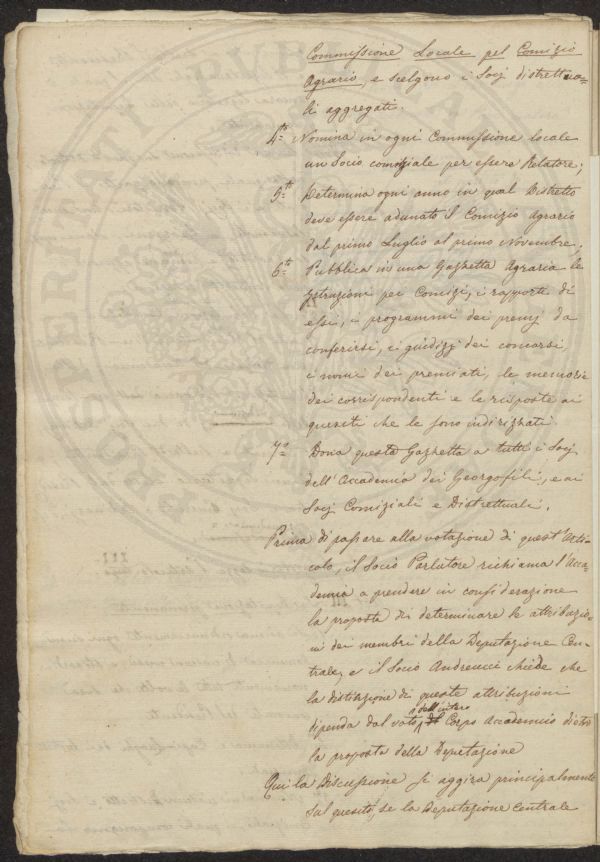 Commissione Locale pel Comizio
Agrario, e scelgono i Socj distrettua=
li aggregati.
4ta Nomina in ogni Commissione locale
un Socio comiziale per essere Relatore;
5ta Determina ogni anno in qual Distretto
deve essere adunato il Comizio Agrario
dal primo Luglio al primo Novembre;
6ta Pubblica in una Gazzetta Agraria le
Istruzioni pei Comizj, i rapporti di
essi, i programmi dei premj da
conferirsi, i giudizj dei concorsi,
i nomi dei premiati, le memorie
dei corrispondenti e le risposte ai
quesiti che le sono indirizzati.
7a Dona questa Gazzetta a tutti i Socj
dell'Accademia dei Georgofili, e ai
Socj Comiziali e Distrettuali.
Prima di passare alla votazione di quest'Arti=
colo, il Socio Parlatore richiama l'Acca=
demia a prendere in considerazione
la proposta di determinare le attribuzio=
ni dei membri della Deputazione Cen=
trale, e il Socio Andreucci chiede che
la distinzione di queste attribuzioni
dell'intero
dipenda dal voto Corpo Accademico dietro
la proposta della Deputazione
Qui la Discussione si aggira principalmente
sul quesito, se la Deputazione Centrale